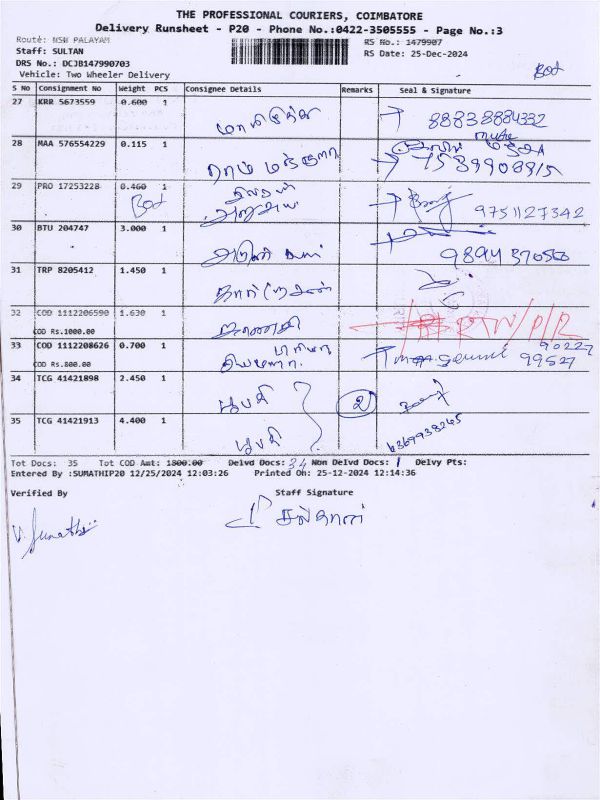 THE PROFESSIONAL COURIERS, COIMBATORE
Delivery Runsheet - P20 - Phone No.:0422-3505555 - Page No.:3
Route: NSN PALAYAM
RS No.: 1479907
Staff: SULTAN
RS Date: 25-Dec-2024
DRS No.: DCJB147990703
Vehicle: Two Wheeler Delivery
S No Consignment No Weight PCS Consignee Details Remarks Seal & Signature
27 KRR 5673559 0.600 1 88838884332
28 MAA 576554229 0.115 1 ராம் 7589908915
29 PRO 17253228 0.460 1 9751127342
30 BTU 204747 3.000 1 அருண் 9894370560
31 TRP 8205412 1.450 1
32 COD 1112206590 1.630 1 RTN/P/R
COD Rs.1000.00
33 COD 1112208626 0.700 1 90227
COD Rs.800.00 99527
34 TCG 41421898 2.450 1 பூபதி 2
35 TCG 41421913 4.400 1 பூபதி 6369938245
Tot Docs: 35 Tot COD Amt: 1800.00 Delvd Docs: 34 Non Delvd Docs: 1 Delvy Pts:
Entered By :SUMATHIP20 12/25/2024 12:03:26 Printed On: 25-12-2024 12:14:36
Verified By Staff Signature
V. Sumathi சுல்தான்